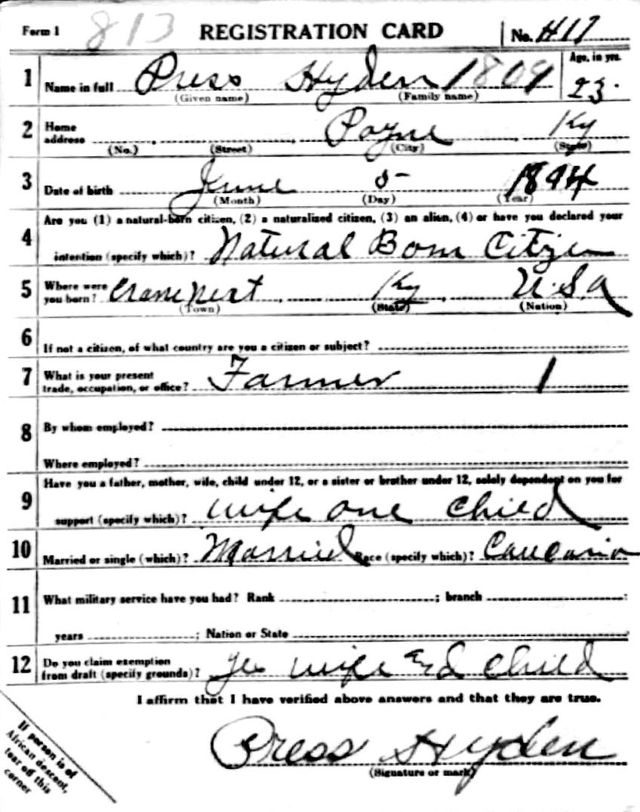 Form 1 813 REGISTRATION CARD No. 417
1 Name in full Press Hyden 1809 Age, in yrs. 23
(Given name) (Family name)
2 Home address Payne Ky
(No.) (Street) (City) (State)
3 Date of birth June 5 1894
(Month) (Day) (Year)
4 Are you (1) a natural-born citizen, (2) a naturalized citizen, (3) an alien, (4) or have you declared your
intention (specify which)? Natural Born Citizen
5 Where were you born? Ky U.S.A
(Town) (State) (Nation)
6 If not a citizen, of what country are you a citizen or subject?
7 What is your present trade, occupation, or office? Farmer 1
8 By whom employed?
Where employed?
9 Have you a father, mother, wife, child under 12, or a sister or brother under 12, solely dependent on you for
support (specify which)? wife one child
10 Married or single (which)? Married Race (specify which)? Caucasian
11 What military service have you had? Rank ; branch
years ; Nation or State
12 Do you claim exemption from draft (specify grounds)? Yes wife and child
I affirm that I have verified above answers and that they are true.
Press Hyden
(Signature or mark)
If person is of
African descent,
tear off this
corner